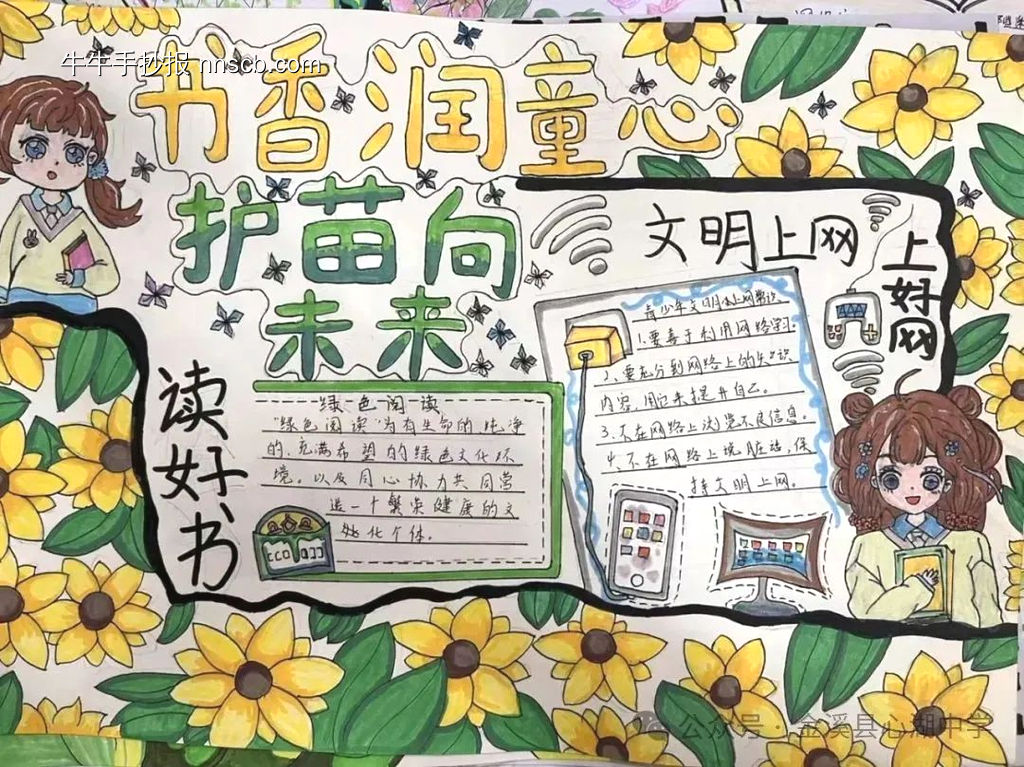 牛牛手抄报 nnscb.com
书香润童心
护苗向
未来
文明上网
上好网
读好书
绿色阅读
"绿色阅读"为有生命的,纯净
的、充满希望的绿色文化环
境。以及同心协力共同营
造一个繁荣健康的文
化个体。
青少年文明上网常识
1.要善于利用网络学习
2、要充分到网络上的知识
内容,用它来提升自己。
3.不在网络上浏览不良信息。
4、不在网络上说脏话,保
持文明上网。
公众号·金溪县心湖中学